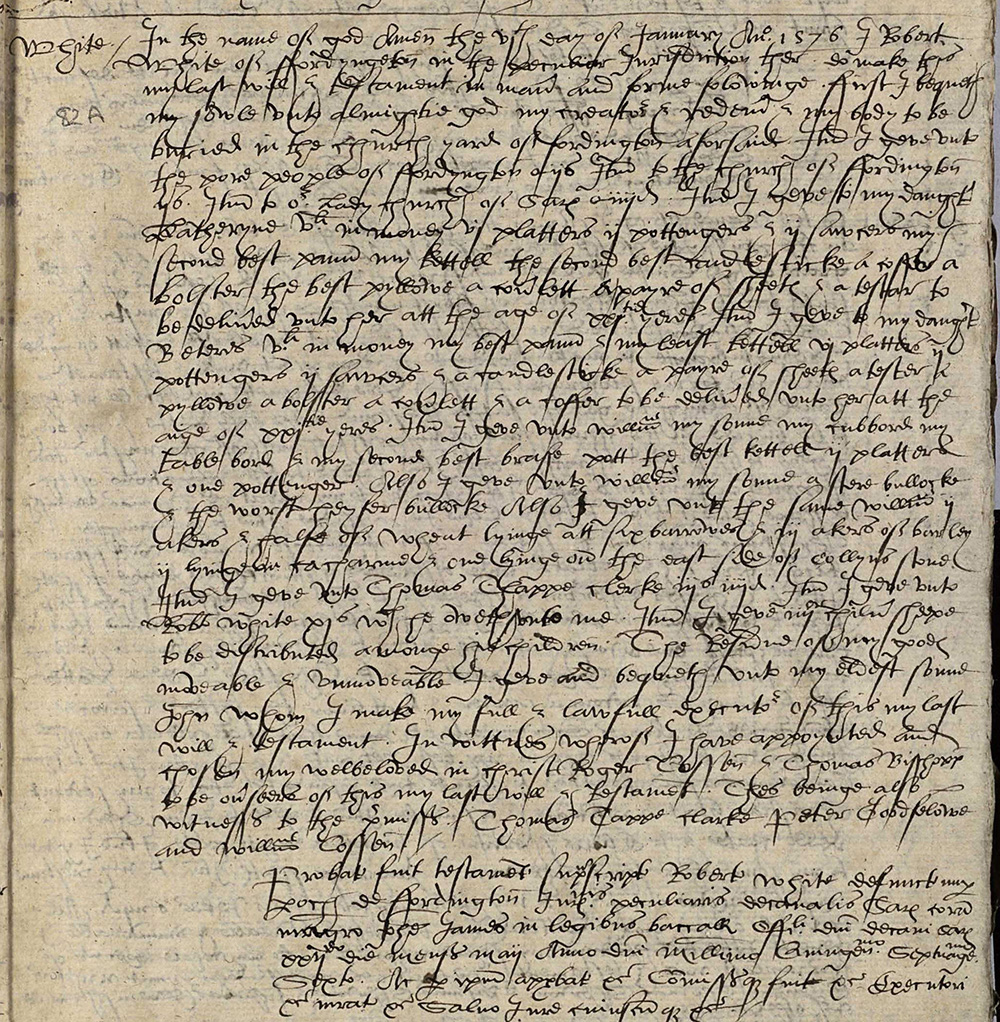 White
82A
In the name of god Amen the vth day of January An. 1576 I Robert
White of ffordyngton in the peculier Jurisdiction ther do make this
my last will & testament in man and forme folowinge. first I bequeth
my sowle unto almightie god my creator & redem & my body to be
buried in the church yard of fordington aforsaid. Itm I geve unto
the pore people of ffordyngton ijs Itm to the church of ffordington
ijs. Itm to or Lady church of Sar iiijd. Itm I geve to my daught
Catheryne vli in money vj platters ij pottengers & ij sawcers my
second best pann my kettell the second best candlesticke a coffer a
bolster the best pyllowe a cov'lett a payre of sheetes & a testar to
be deliv'ed unto her att the age of xxjtie yeres Itm I geve to my daught
Beteres vli in money my best pann & my least kettell vj platters ij
pottengers ij sawcers & a candlesticke a payre of sheets a tester a
pyllowe a bolster a cov'lett & a coffer to be deliv'ed unto her att the
age of xxjtie yeres. Itm I geve unto willm my sonne my cubbord my
table bord & my second best brasse pott the best kettell ij platters
& one pottenger. Also I geve unto willm my sonne a stere bullocke
& the worst heyfer bullocke Also I geve unto the same willm ij
akers & halfe of wheat lyinge att six barrowes & iij akers of barley
ij lyinge on & one lyinge on the east side of Collyns stone
Itm I geve unto Thomas Tappe clerke iijs iiijd Itm I geve unto
Robt White xjs wch he oweth unto me. Itm I geve iiij sheepe
to be distributed amonge his children. The Residue of my goods
moveable & unmoveable I geve and bequeth unto my eldest sonne
John whom I make my full & lawfull executor of this my last
will & testament. In wittnes wherof I have appoynted and
chosen my welbeloved in christ Roger Cossen & Thomas Bisshopp
to be ov'seers of this my last will & Testament. Thes beinge also
witnesss to the p'misses. Thomas Tappe clarke Peter Goodfelowe
and willm Cossen
Probat fuit testament sup'script Robert White defunct nup
poch de ffordington Jur'is peculiaris decanalis Sar coram
mgro Johe James in legibus baccall Offili dni decani Sar
xxijdo die mens maij Anno dni millimo Quingenmo Septuage
Sexto. Ac p ipum approbat &c Commissq fuit &c Executori
&c Jurat &c Salvo Jure cuiuscunq &c